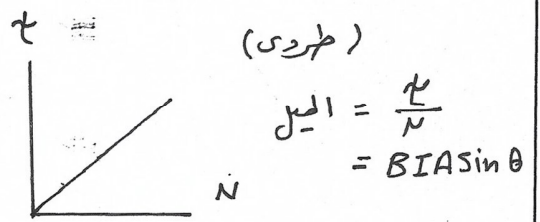 τ
(طردى)
الميل = τ/N
= BIA Sin θ
N